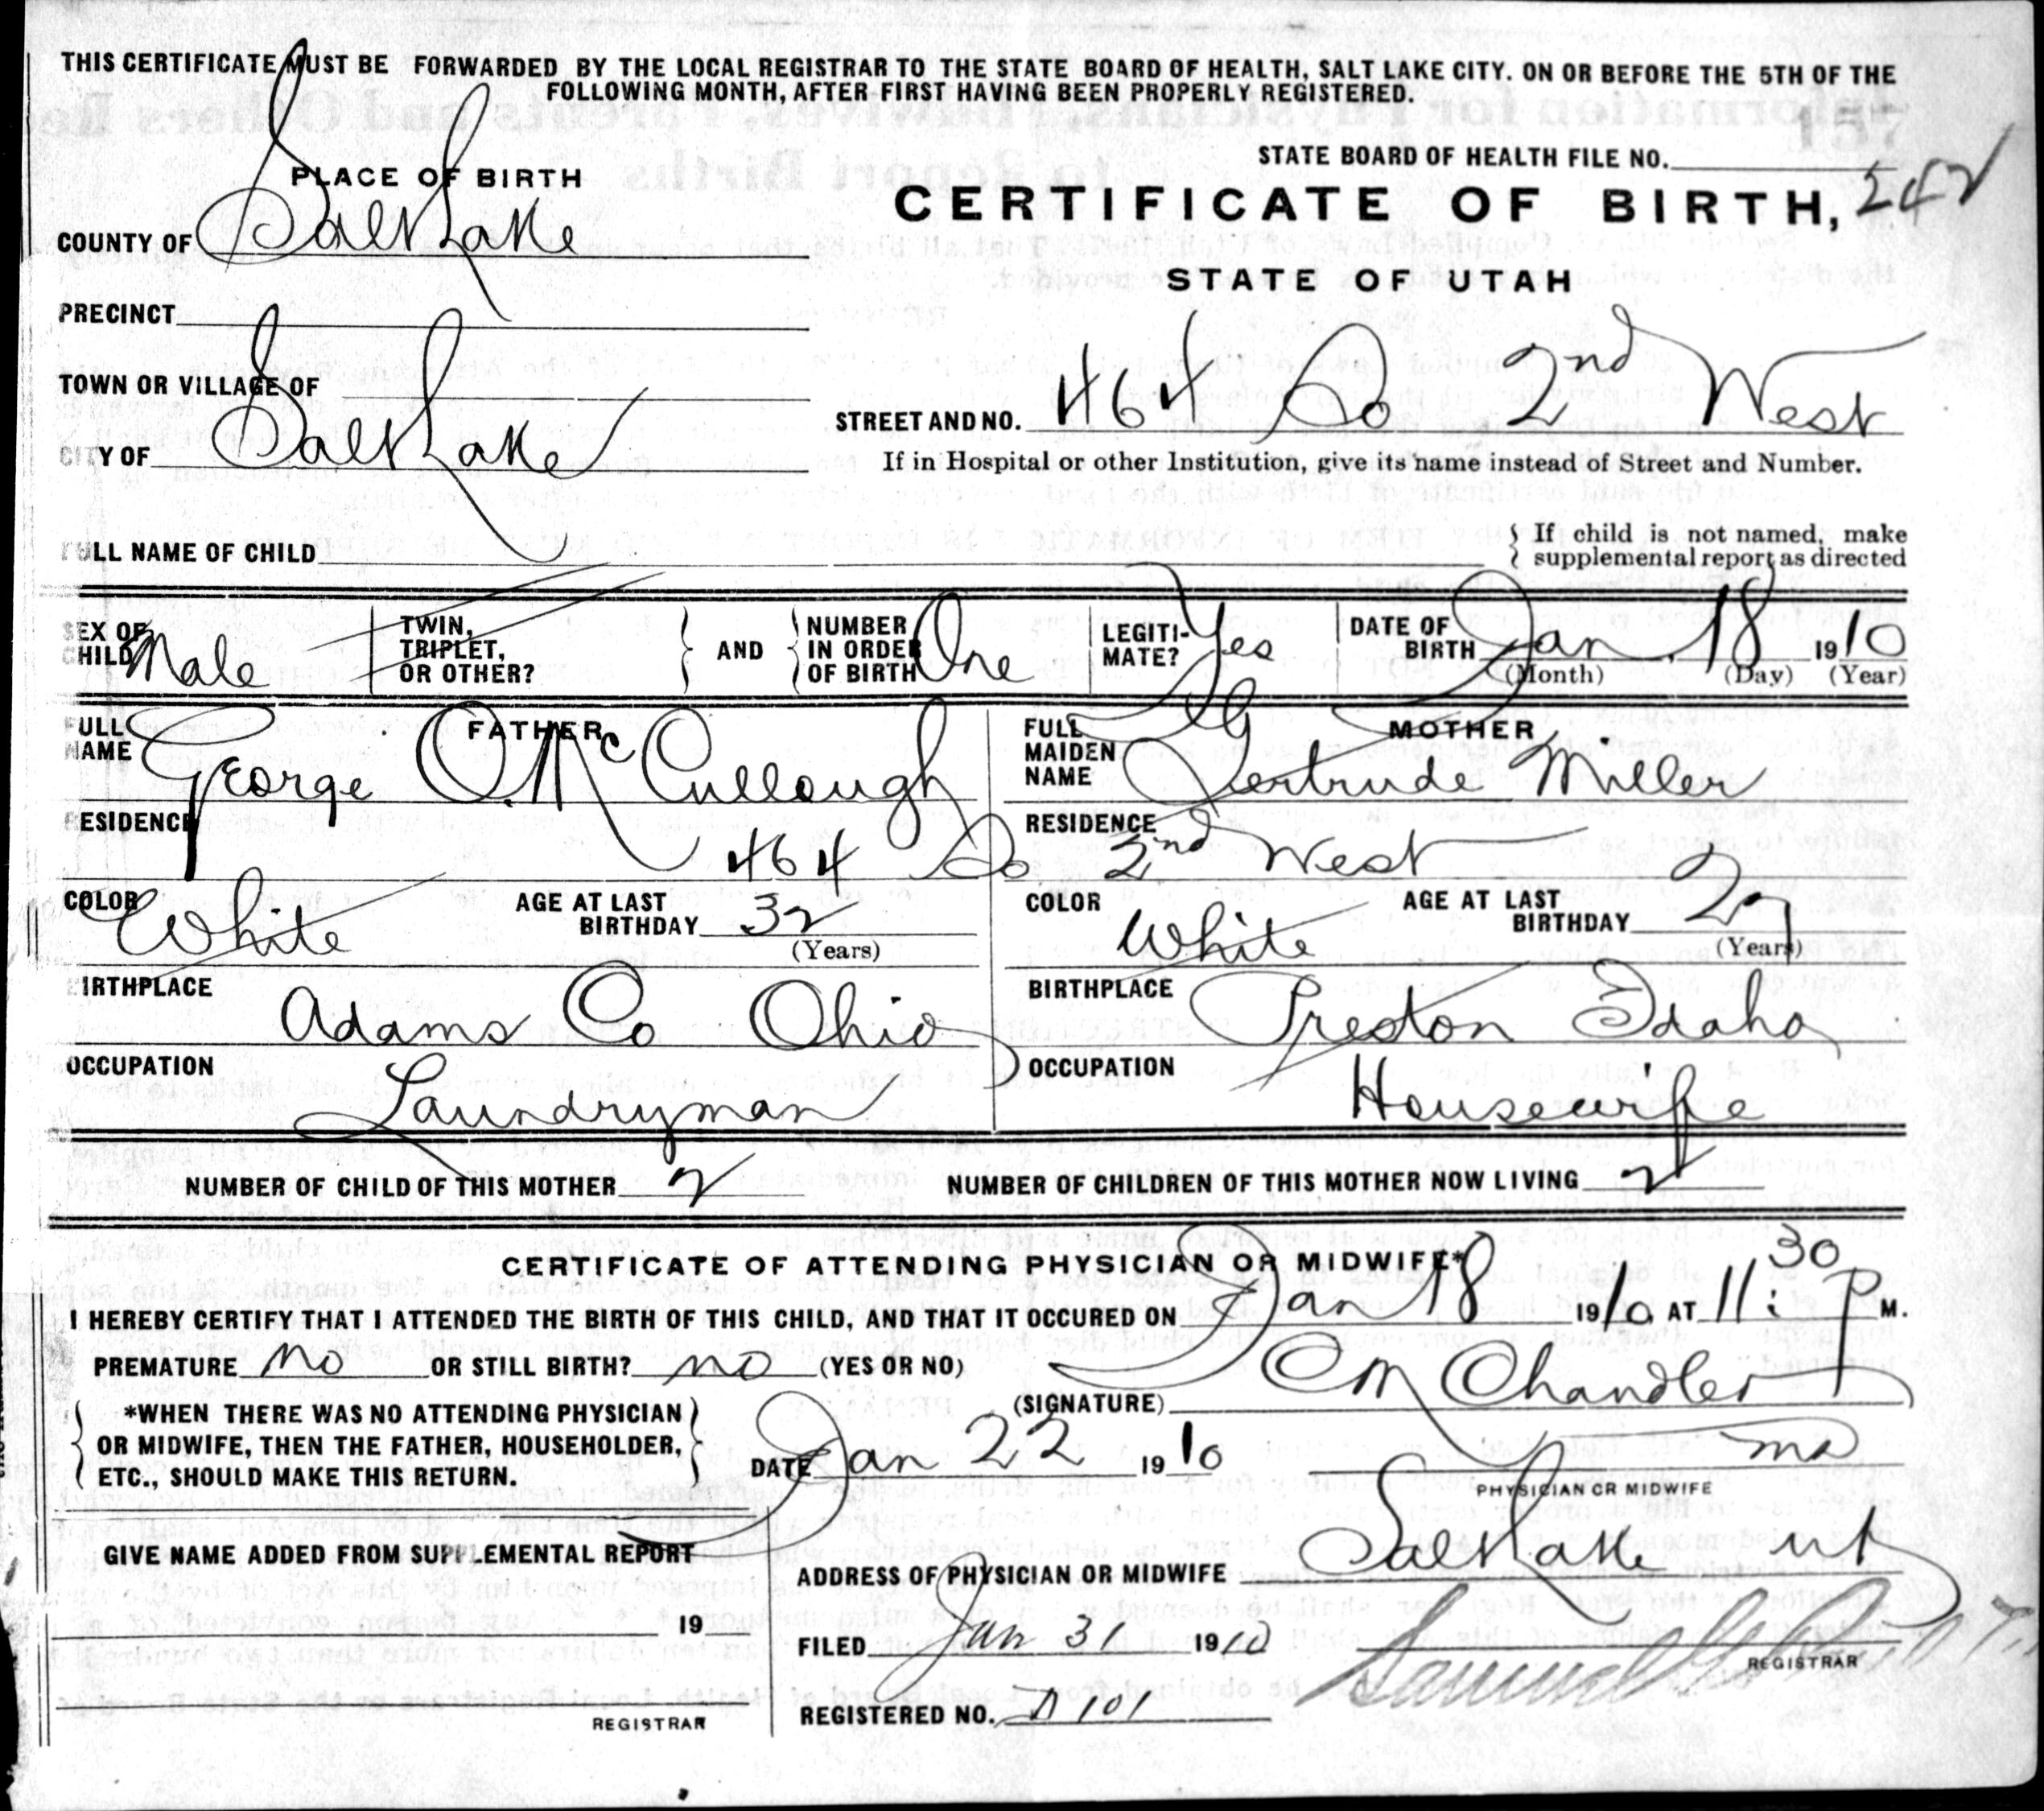 THIS CERTIFICATE MUST BE FORWARDED BY THE LOCAL REGISTRAR TO THE STATE BOARD OF HEALTH, SALT LAKE CITY. ON OR BEFORE THE 5TH OF THE
FOLLOWING MONTH, AFTER FIRST HAVING BEEN PROPERLY REGISTERED.
STATE BOARD OF HEALTH FILE NO.
PLACE OF BIRTH
CERTIFICATE OF BIRTH, 242
COUNTY OF Salt Lake
STATE OF UTAH
PRECINCT
TOWN OR VILLAGE OF
STREET AND NO. 464 So 2nd West
CITY OF Salt Lake
If in Hospital or other Institution, give its name instead of Street and Number.
FULL NAME OF CHILD
If child is not named, make
supplemental report as directed
SEX OF CHILD Male
TWIN, TRIPLET, OR OTHER?
AND
NUMBER IN ORDER OF BIRTH One
LEGITI-MATE? Yes
DATE OF BIRTH Jan, 18 1910
(Month) (Day) (Year)
FATHER
FULL NAME George O. McCullough
MOTHER
FULL MAIDEN NAME Gertrude Miller
RESIDENCE 464 So
RESIDENCE 2nd West
COLOR White
AGE AT LAST BIRTHDAY 32
(Years)
COLOR White
AGE AT LAST BIRTHDAY 27
(Years)
BIRTHPLACE Adams Co Ohio
BIRTHPLACE Preston Idaho
OCCUPATION Laundryman
OCCUPATION Housewife
NUMBER OF CHILD OF THIS MOTHER 2
NUMBER OF CHILDREN OF THIS MOTHER NOW LIVING 2
CERTIFICATE OF ATTENDING PHYSICIAN OR MIDWIFE*
I HEREBY CERTIFY THAT I ATTENDED THE BIRTH OF THIS CHILD, AND THAT IT OCCURED ON Jan 18 1910 AT 11:30 P M.
PREMATURE no OR STILL BIRTH? no (YES OR NO)
(SIGNATURE) CM Chandler
*WHEN THERE WAS NO ATTENDING PHYSICIAN
OR MIDWIFE, THEN THE FATHER, HOUSEHOLDER,
ETC., SHOULD MAKE THIS RETURN.
DATE Jan 22 1910
MD
PHYSICIAN OR MIDWIFE
GIVE NAME ADDED FROM SUPPLEMENTAL REPORT
ADDRESS OF PHYSICIAN OR MIDWIFE Salt Lake Ut
19
FILED Jan 31 1910
Samuel
REGISTRAR
REGISTRAR
REGISTERED NO. D 101